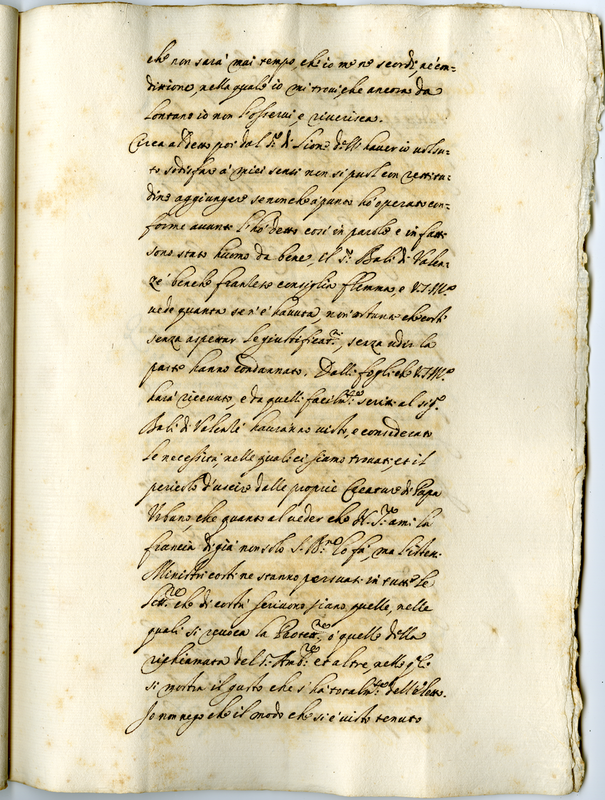 che non sarà mai tempo, che io me ne scordi, ne con=
ditione, nella quale io mi trovi, che ancora da
lontano io non l'osservi, e riverisca.
Circa al detto poi dal S.r di Lione dell'haver io volsu=
to sodisfare a' miei sensi non si può con rettitu=
dine aggiungere se non che à punto hò operato con=
forme avanti l'hò detto così in parole e in fatti
sono stato huomo da bene, il S.r Balì di Valen=
zè benche franzese consiglia flemma, e V. Em.a
vede quanta se n'è havuta non ostante che costì
senza aspettar le giustificat.ni, senza udir la
parte hanno condannato. Dalli fogli che V. Em.a
harà ricevuto, e da quelli facilm.te scritti al sig.r
Balì di Valenzè hauranno visto, e considerato
le necessità, nelle quali ci siamo trovati, et il
pericolo d'uscire dalle proprie Creature di Papa
Urbano, che quanto al veder che N. S.re ami la
francia di già non solo S. B.ne lo fa, ma l'istessi
Ministri costì ne stanno persuasi in tutte le
lett.re che di costà scrivono siano quelle, nelle
quali si revoca la Protett.ne, ò quelle della
richiamata del S. Amb.re et altre, nelle q.li
si mostra il gusto che s'ha totalm.te dell'eletto.
Io non nego che il modo che si è visto tenuto